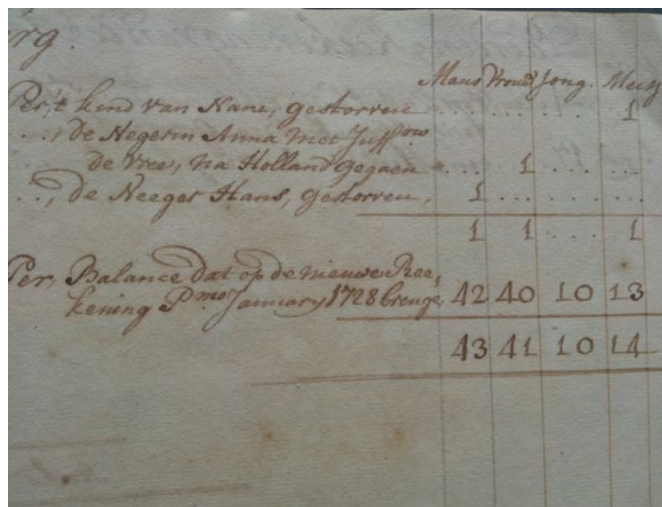 rg.
Mans Vrouws Jong. Meisj
Per, t kind van Nani, gestorven . . . . . . . . . 1
. . , de Negerin Anna met Juffouw
de Vree, na Holland gegaen . . . 1 . . . . . . .
. . , de Neeger Hans, gestorven, 1 . . . . . . . . .
1 1 . . . . 1
Per, Balance dat op de nieuwe Ree,
kening Pmo January 1728 brenge, 42 40 10 13
43 41 10 14